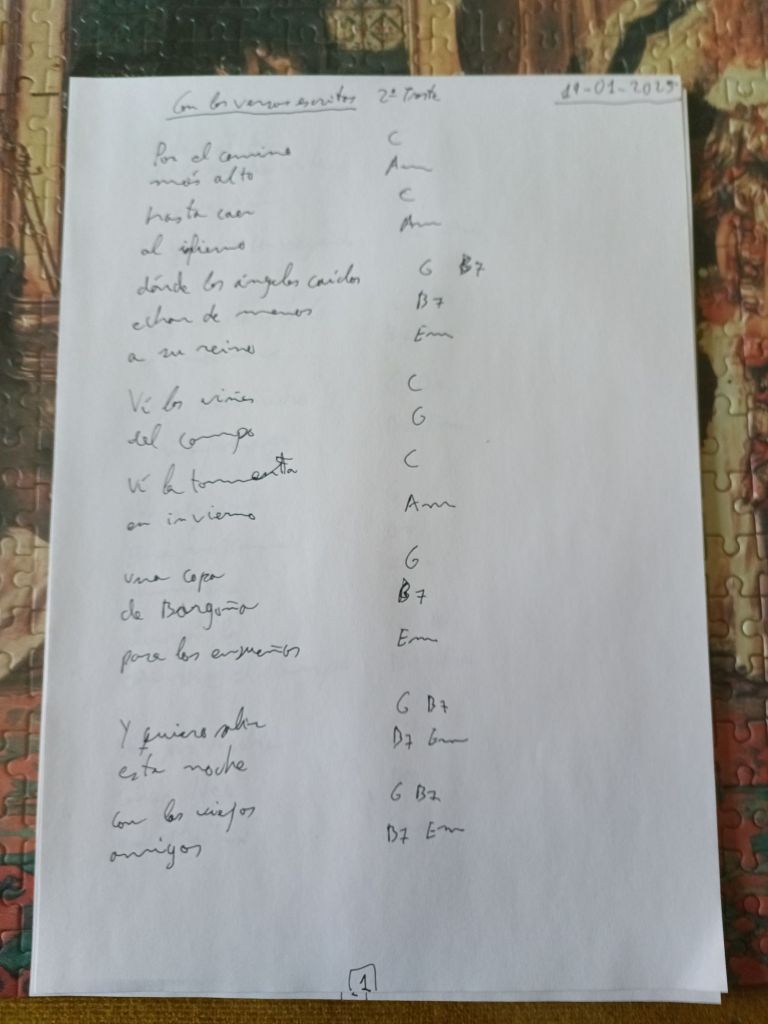 Con los versos escritos 2º Traste 19-01-2025
Por el camino C
más alto Am
hasta caer C
al ifierno Am
dónde los ángeles caídos G B7
echan de menos B7
a su reino Em
Ví las viñas C
del campo G
Ví la tormenta C
en invierno Am
una copa G
de Borgoña B7
para los ensueños Em
Y quiero salir G B7
esta noche B7 Em
con los viejos G B7
amigos B7 Em
1